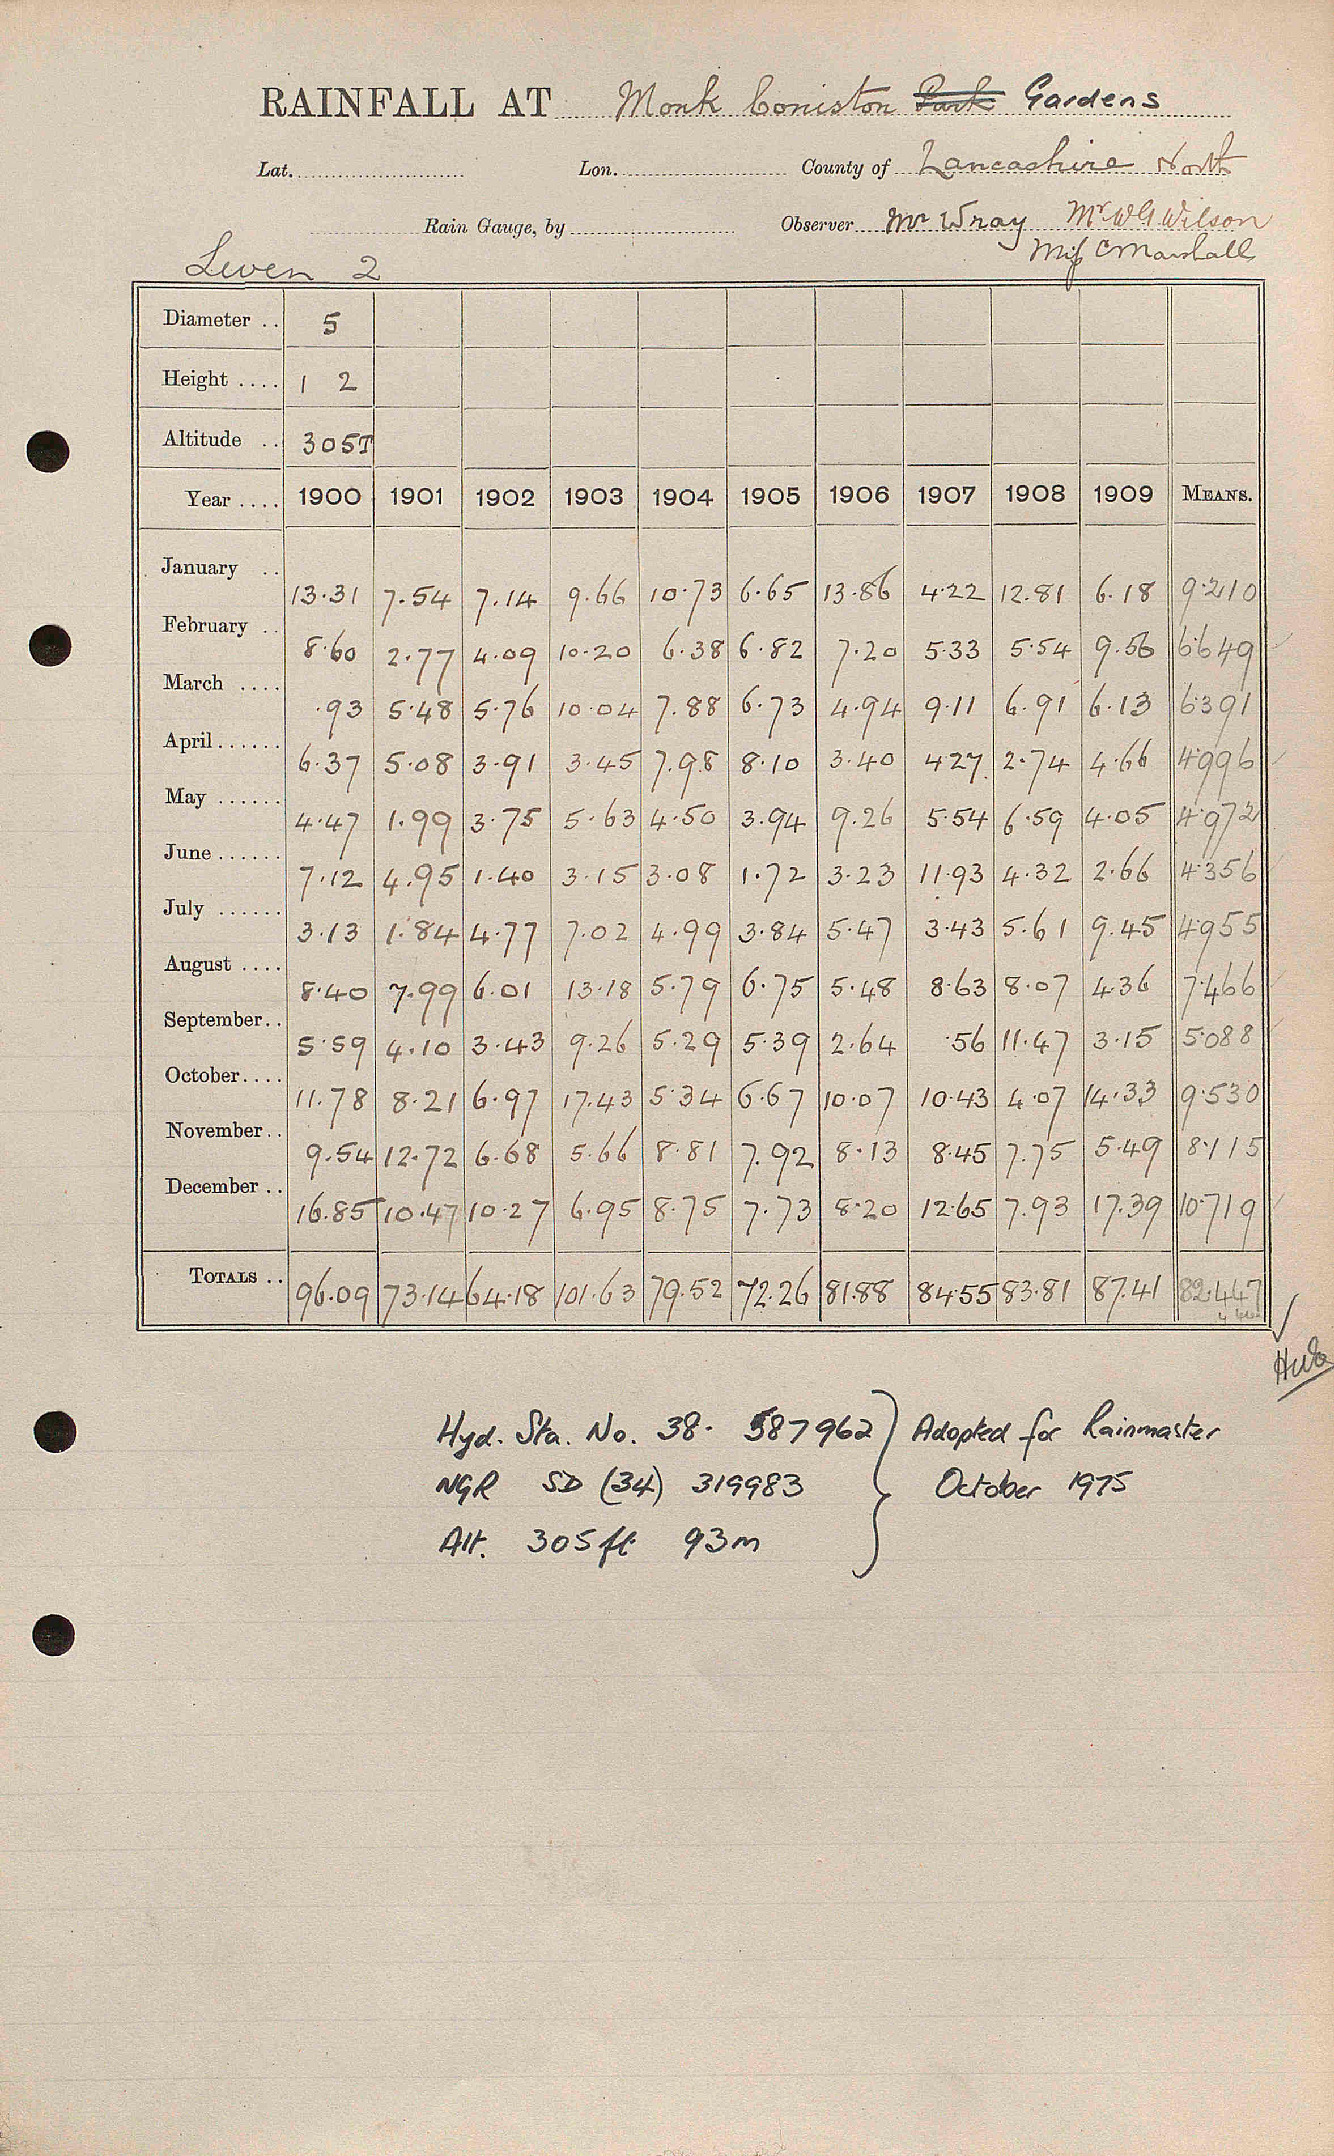 RAINFALL AT Monk Coniston Park Gardens
Lat. Lon. County of Lancashire North
Rain Gauge, by Observer Mr Wray Mr WG Wilson
Miss C Marshall
Leven 2
Diameter .. 5
Height .... 1 2
Altitude .. 305T
Year .... 1900 1901 1902 1903 1904 1905 1906 1907 1908 1909 MEANS.
January .. 13.31 7.54 7.14 9.66 10.73 6.65 13.86 4.22 12.81 6.18 9.210
February .. 8.60 2.77 4.09 10.20 6.38 6.82 7.20 5.33 5.54 9.56 6.649
March .... .93 5.48 5.76 10.04 7.88 6.73 4.94 9.11 6.91 6.13 6.391
April ...... 6.37 5.08 3.91 3.45 7.98 8.10 3.40 4.27 2.74 4.66 4.996
May ...... 4.47 1.99 3.75 5.63 4.50 3.94 9.26 5.54 6.59 4.05 4.972
June ...... 7.12 4.95 1.40 3.15 3.08 1.72 3.23 11.93 4.32 2.66 4.356
July ...... 3.13 1.84 4.77 7.02 4.99 3.84 5.47 3.43 5.61 9.45 4.955
August .... 8.40 7.99 6.01 13.18 5.79 6.75 5.48 8.63 8.07 4.36 7.466
September.. 5.59 4.10 3.43 9.26 5.29 5.39 2.64 .56 11.47 3.15 5.088
October.... 11.78 8.21 6.97 17.43 5.34 6.67 10.07 10.43 4.07 14.33 9.530
November.. 9.54 12.72 6.68 5.66 8.81 7.92 8.13 8.45 7.75 5.49 8.115
December .. 16.85 10.47 10.27 6.95 8.75 7.73 8.20 12.65 7.93 17.39 10.719
TOTALS .. 96.09 73.14 64.18 101.63 79.52 72.26 81.88 84.55 83.81 87.41 82.447
Hyd. Sta. No. 38. 587962 } Adopted for Rainmaster
NGR SD (34) 319983 October 1975
Alt. 305ft 93m